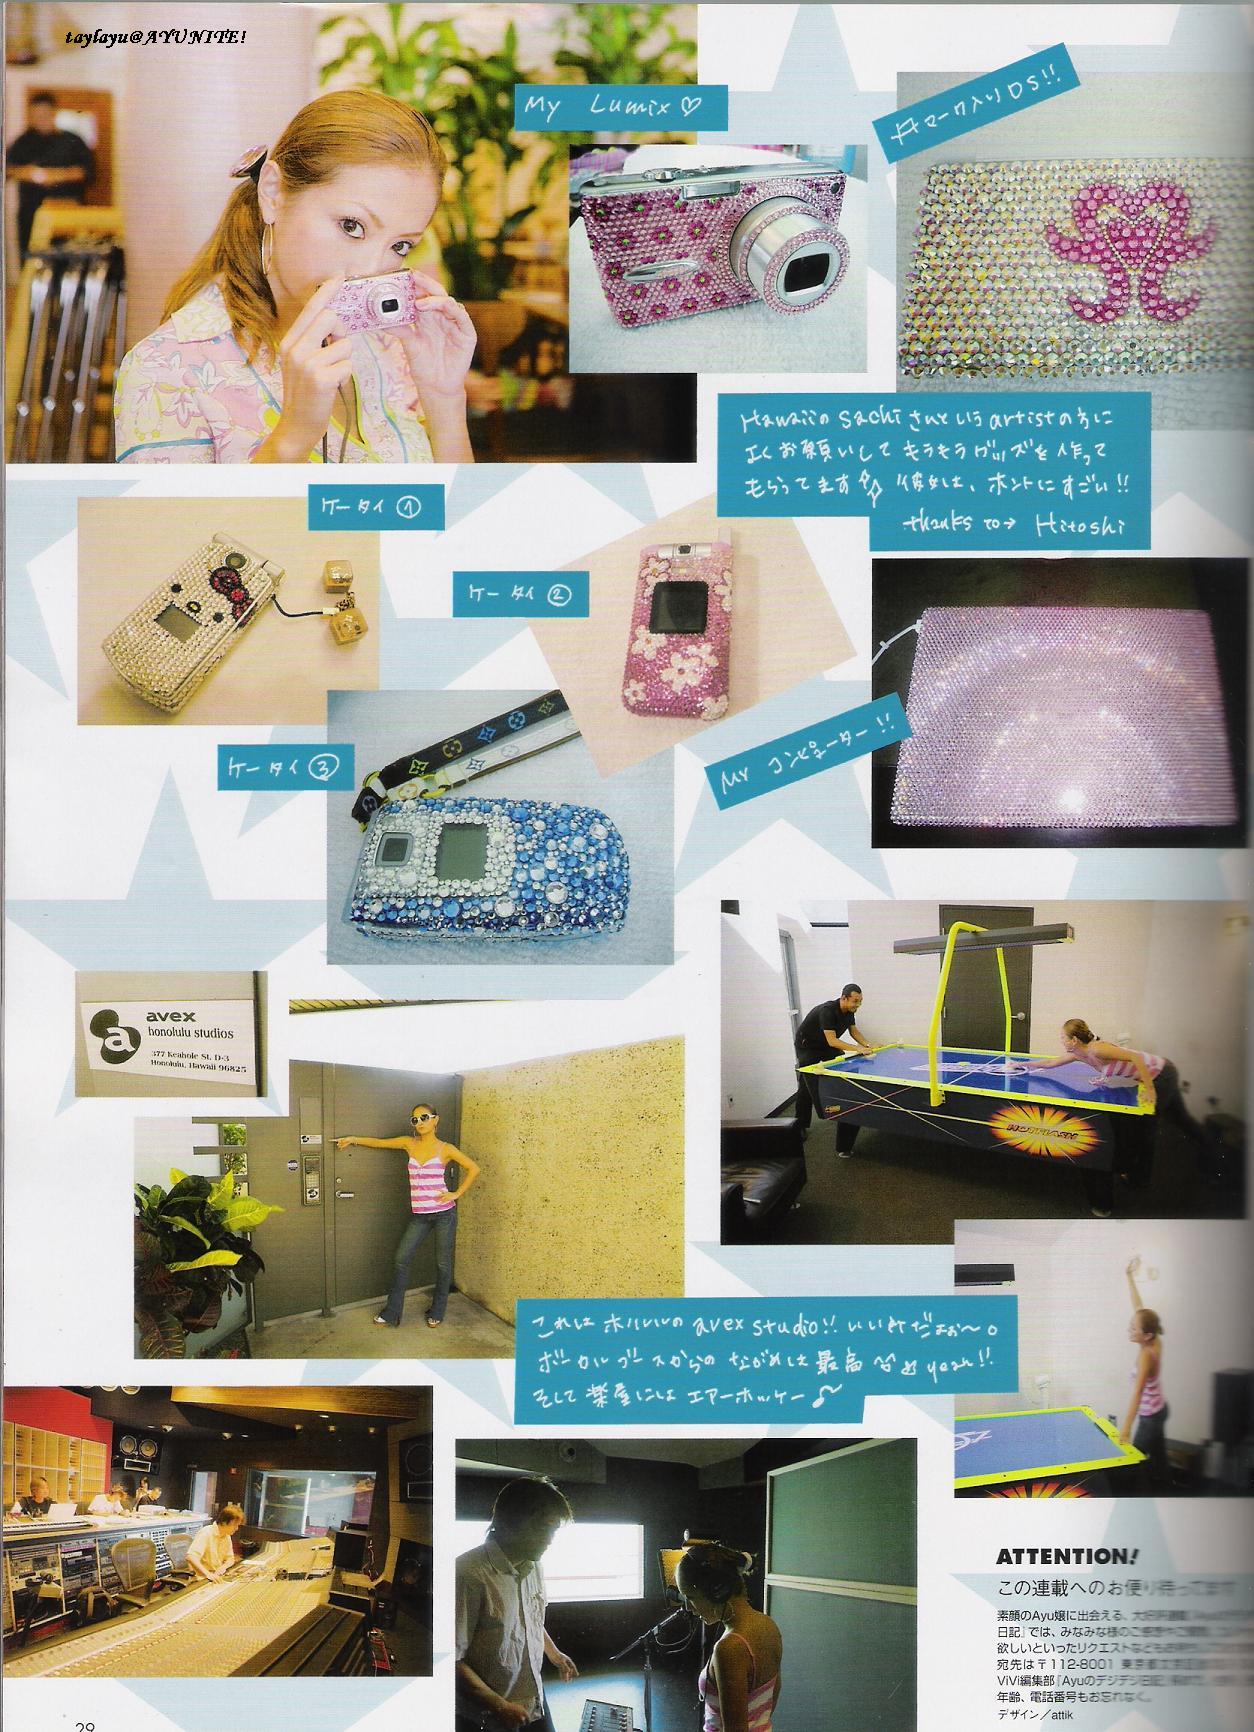 taylayu@AYUNITE!
My Lumix♡
マーク入りDS!!
Hawaiiの Sachi さんという artistの方に
よくお願いして キラキラグッズを作って
もらってます 彼女は、ホントにすごい!!
thanks to→ Hitoshi
ケータイ①
ケータイ②
ケータイ③
My コンピューター!!
avex
honolulu studios
377 Keahole St. D-3
Honolulu, Hawaii 96825
HOTFLASH
これは ホノルルの avex studio!!
ボーカルブースからの ながめは 最高 yeah!!
そして 楽屋には エアーホッケー♪
ATTENTION!
この連載へのお便り待ってます
素顔のAyu嬢に出会える、
日記』では、みなみな様のご感想や
欲しいといったリクエストなども
宛先は〒112-8001 東京都文京
ViVi編集部「Ayuのデジデジ日記」
年齢、電話番号もお忘れなく。
デザイン/attik
29